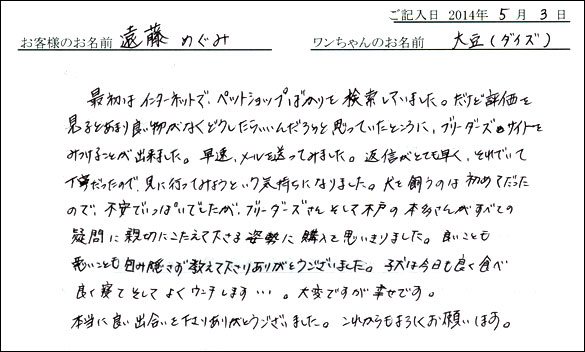 ご記入日 2014年 5月 3日
お客様のお名前 遠藤 めぐみ ワンちゃんのお名前 大豆(ダイズ)
最初はインターネットで、ペットショップばかりを検索していました。だけど評価を
見るとあまり良い物がなくどうしたらいいんだろうと思っていたところに、ブリーダーズのサイトを
みつけることが出来ました。早速、メールを送ってみました。返信がとても早く、それでいて
丁寧だったので、見に行ってみようという気持ちになりました。犬を飼うのは初めてだった
ので、不安でいっぱいでしたが、ブリーダーズさんそして木戸の本多さんがすべての
疑問に親切にこたえて下さる姿勢に購入を思いきりました。良いことも
悪いことも包み隠さず教えて下さりありがとうございました。子犬は今日も良く食べ
良く寝てそしてよくウンチします…。大変ですが幸せです。
本当に良い出合いを下さりありがとうございました。これからもよろしくお願いします。